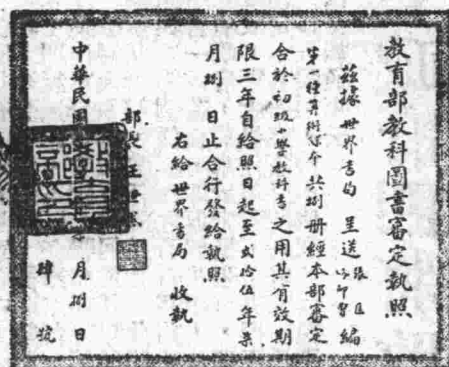 教育部教科圖書審定執照
茲據 世界書局 呈送 張匡 編
第一種算術課本 共捌册經本部審定
合於初級小學教科書之用其有效期
限三年自給照日起至貳拾伍年
月捌 日止合行發給執照
右給世界書局 收執
部長 王世
中華民國 月捌日
肆 號